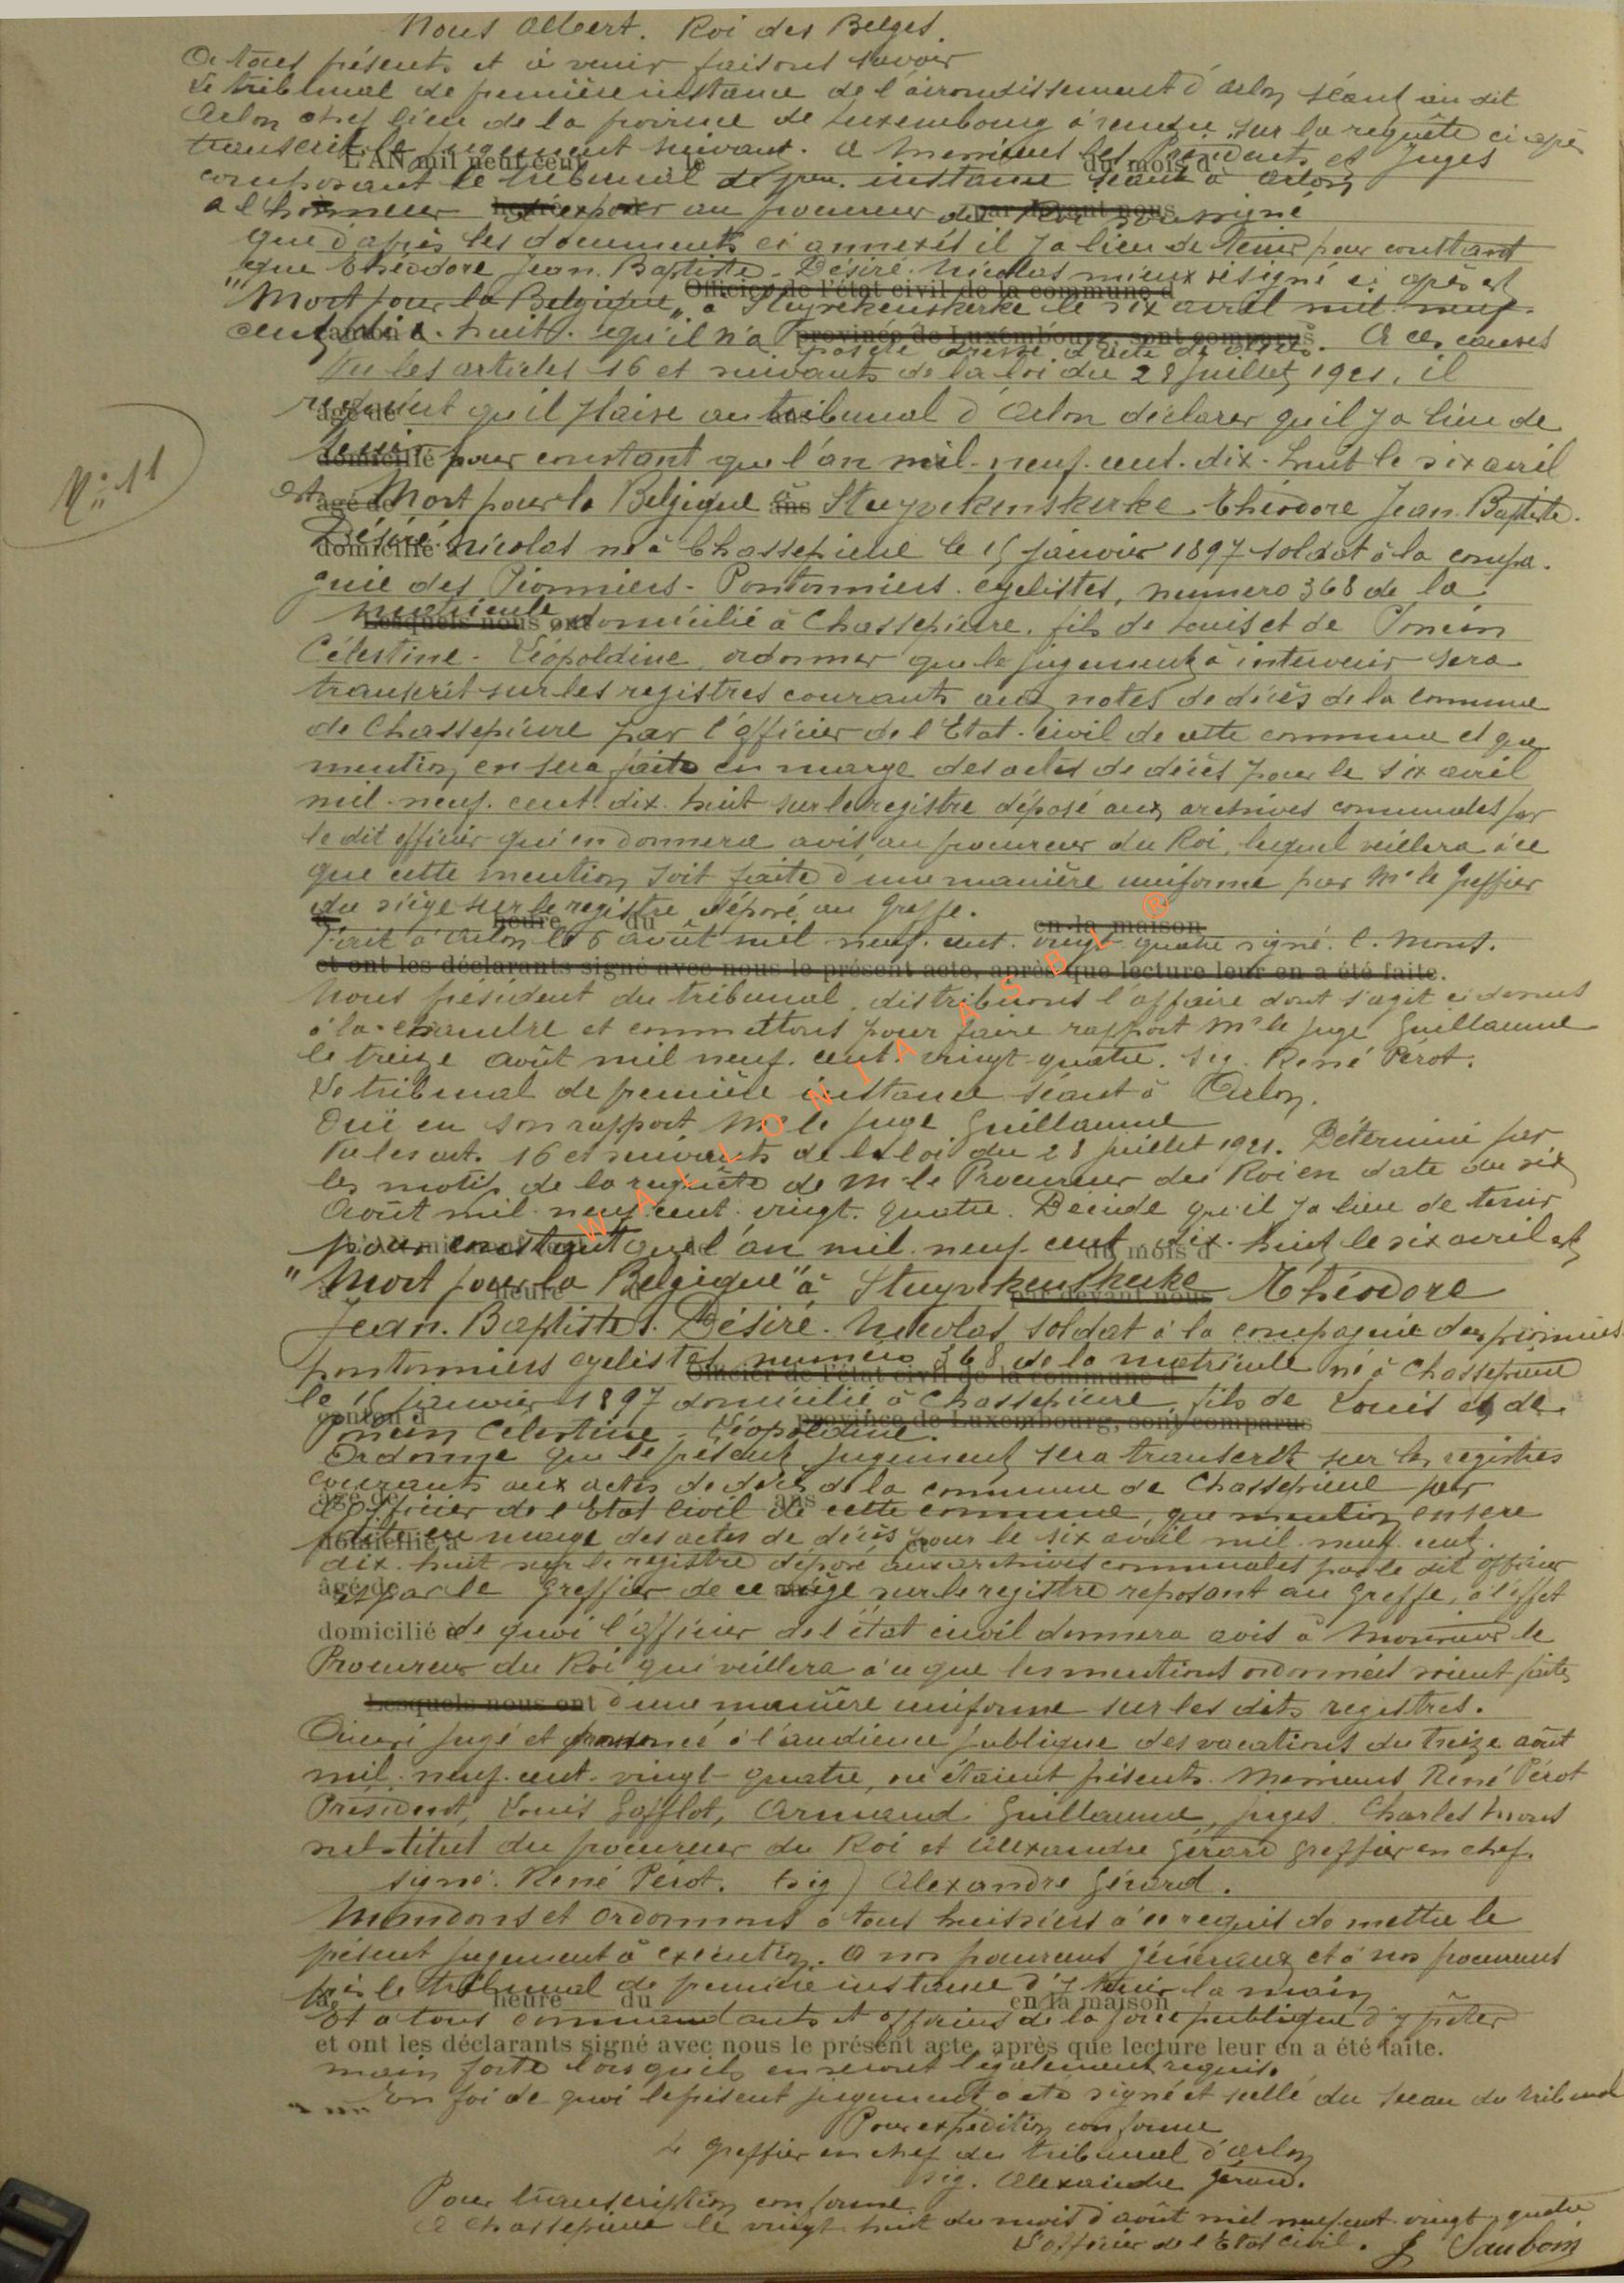 Nous Albert. Roi des Belges.
A tous présents et à venir faisons savoir
Le tribunal de première instance de l'arrondissement d'Arlon séant au dit
Arlon chef lieu de la province de Luxembourg a rendu sur la requête ci après
transcrite le jugement suivant. A Messieurs les Présidents et Juges
L'AN mil neuf cent le du mois d
composant le tribunal de prem. instance séant à Arlon
a l'honneur d'exposer au procureur du Roi soussigné
par devant nous
que d'après les documents ci annexés il y a lieu de tenir pour constant
que Théodore Jean. Baptiste. Désiré. Nicolas mieux désigné ci après est
Officier de l'état civil de la commune d
"Mort pour la Belgique" à Stuyvekenskerke le six avril mil. neuf.
cent dix. huit. qu'il n'a A ces causes
province de Luxembourg, sont comparus
pas été dressé d'acte de décès.
Vu les articles 16 et suivants de la loi du 28 juillet 1921, il
requiert qu'il plaise au tribunal d'Arlon déclarer qu'il y a lieu de
âgé de ans
tenir pour constant que l'an mil. neuf. cent. dix. huit le six avril
domicilié
N° 11
est Mort pour la Belgique à Stuyvekenskerke. Théodore Jean. Baptiste.
âgé de ans
Désiré. Nicolas né à Chassepierre le 15 janvier 1897 soldat à la compa.
domicilié
gnie des Pionniers. Pontonniers. cyclistes, numéro 368 de la
matricule, domicilié à Chassepierre. fils de Louis et de
Lesquels nous ont
Célestine. Léopoldine, ordonner que le jugement à intervenir sera
transcrit sur les registres courants aux notes de décès de la commune
de Chassepierre par l'officier de l'Etat. civil de cette commune et que
mention en sera faite en marge des actes de décès pour le six avril
mil. neuf. cent. dix. huit sur le registre déposé aux archives communales par
le dit officier qui en donnera avis au procureur du Roi, lequel veillera à ce
que cette mention soit faite d'une manière uniforme par Mr le Greffier
du siège sur le registre déposé au Greffe.
heure du en la maison
Fait à Arlon le 6 août mil neuf. cent. vingt quatre signé. C. Mons.
et ont les déclarants signé avec nous le présent acte, après que lecture leur en a été faite.
Nous président du tribunal. distribuons l'affaire dont s'agit ci dessus
à la chambre et commettons pour faire rapport Mr le Juge Guillaume
le treize août mil neuf. cent. vingt quatre. sig. René Pérot.
Le tribunal de première instance séant à Arlon.
Ouï en son rapport Mr le Juge Guillaume
Vu les art. 16 et suivants de la loi du 28 juillet 1921. Déterminé par
les motifs de la requête de Mr le Procureur du Roi en date du six
Août mil. neuf. cent. vingt. quatre. Décide qu'il y a lieu de tenir
pour constant que l'an mil. neuf. cent. dix. huit le six avril est
du mois d
"Mort pour la Belgique" à Stuyvekenskerke Théodore
heure par devant nous
Jean. Baptiste. Désiré. Nicolas, soldat à la compagnie des pionniers
pontonniers cyclistes numéro 368 de la matricule né à Chassepierre
Officier de l'état civil de la commune d
le 15 janvier 1897 domicilié à Chassepierre, fils de Louis et de
canton d province de Luxembourg, sont comparus
Célestine. Léopoldine.
Ordonne que le présent jugement sera transcrit sur les registres
courants aux actes de décès de la commune de Chassepierre par
âgé de ans
l'Officier de l'Etat Civil de cette commune, que mention en sera
faite en marge des actes de décès pour le six avril mil. neuf. cent.
domicilié à et
dix. huit sur le registre déposé aux archives communales par le dit officier
et par le Greffier de ce siège sur le registre reposant au Greffe, à l'effet
âgé de
domicilié à de quoi l'officier de l'état civil donnera avis à Monsieur le
Procureur du Roi qui veillera à ce que les mentions ordonnées soient faites
Lesquels nous ont d'une manière uniforme sur les dits registres.
Ainsi jugé et prononcé à l'audience publique des vacations du treize août
mil. neuf. cent. vingt quatre, où étaient présents. Messieurs René Pérot
Président, Louis Gofflot, Armand Guillaume, juges. Charles Mons
substitut du procureur du Roi et Alexandre Gérard Greffier en chef.
signé. René Pérot. (sig) Alexandre Gérard.
Mandons et Ordonnons à tous huissiers à ce requis de mettre le
présent jugement à exécution. A nos procureurs généraux et à nos procureurs
près le tribunal de première instance d'y tenir la main
à heure du en la maison
Et à tous commandants et officiers de la force publique d'y prêter
et ont les déclarants signé avec nous le présent acte, après que lecture leur en a été faite.
main forte lorsqu'ils en seront légalement requis.
En foi de quoi le présent jugement a été signé et scellé du sceau du tribunal
Pour expédition conforme
Le Greffier en chef du tribunal d'Arlon
sig. Alexandre Gérard.
Pour transcription conforme
A Chassepierre le vingt huit du mois d'août mil neuf cent vingt quatre
L'officier de l'Etat Civil.
WALLONIA ASBL ®